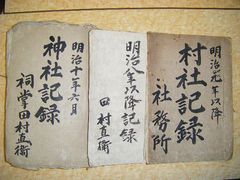 明治元年以降
村社記録
社務所
明治八年以降記録
田村直衛
明治十一年六月
神社記録
祠掌田村直衛